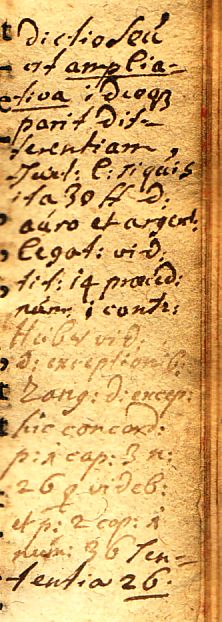 dictio seu
est amplia-
tiva ideoq3
parit dif-
ferentiam,
Text: l: siquis
ita 30 ff d:
auro et argent:
legat: vid:
tit: 14 praeced:
num: 1 contr:
Huber vid:
d: exceptionib:
Zang: d: excep:
hic concord:
p: 1 cap: 3 n:
26 q videb:
et p: 2 cap: 1
num: 36 Sen-
tentia 26.